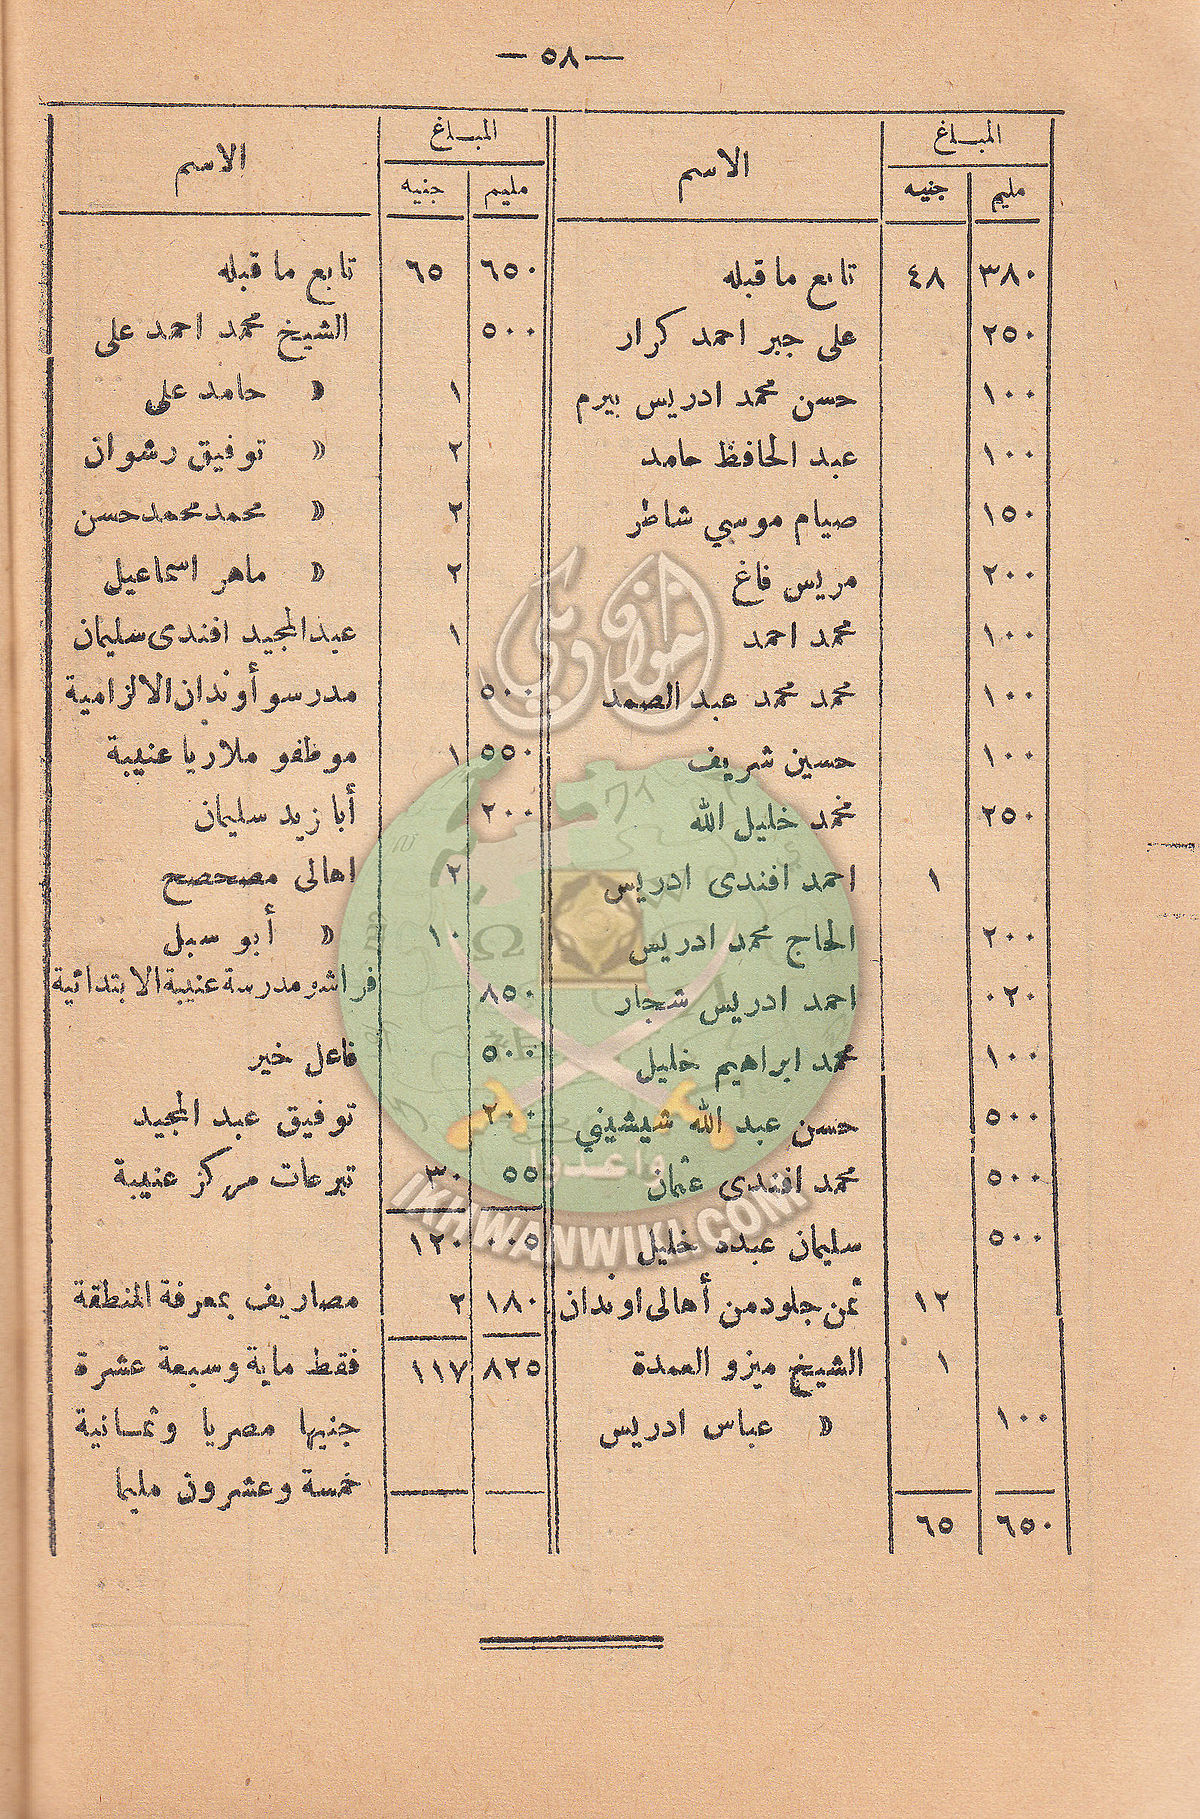 — ٥٨ —
المبلغ الاسم
مليم جنيه
٣٨٠ ٤٨ تابع ما قبله
٢٥٠ على جبر احمد كرار
١٠٠ حسن محمد ادريس بيرم
١٠٠ عبد الحافظ حامد
١٥٠ صيام موسي شاطر
٢٠٠ مريس فاغ
١٠٠ محمد احمد
١٠٠ محمد محمد عبد الصمد
١٠٠ حسين شريف
٢٥٠ محمد خليل الله
١ احمد افندى ادريس
٢٠٠ الحاج محمد ادريس
٠٢٠ احمد ادريس شجار
١٠٠ محمد ابراهيم خليل
٥٠٠ حسن عبد الله شيشيني
٥٠٠ محمد افندى عثمان
٥٠٠ سليمان عبده خليل
١٢ ثمن جلود من أهالى اوندان
١ الشيخ ميزو العمدة
١٠٠ » عباس ادريس
٦٥٠ ٦٥
المبلغ الاسم
مليم جنيه
٦٥٠ ٦٥ تابع ما قبله
٥٠٠ الشيخ محمد احمد على
١ » حامد على
٢ » توفيق رشوان
٢ » محمد محمد حسن
٢ » ماهر اسماعيل
١ عبد المجيد افندى سليمان
٥٠٠ مدرسو أوندان الالزامية
٥٥٠ ١ موظفو ملاريا عنيبة
٢٠٠ أبا زيد سليمان
٢ اهالى مصحصح
١٠ » أبو سبل
٨٥٠ فراشو مدرسة عنيبة الابتدائية
٥٠٠ فاعل خير
٢٠٠ توفيق عبد المجيد
٥٥ ٣٠ تبرعات مركز عنيبة
٠٠٥ ١٢٠
١٨٠ ٢ مصاريف بمعرفة المنطقة
٨٢٥ ١١٧ فقط ماية وسبعة عشرة
جنيها مصريا وثمانية
خمسة وعشرون مليما
إخوان ويكي
واعدوا
IKHWANWIKI.COM